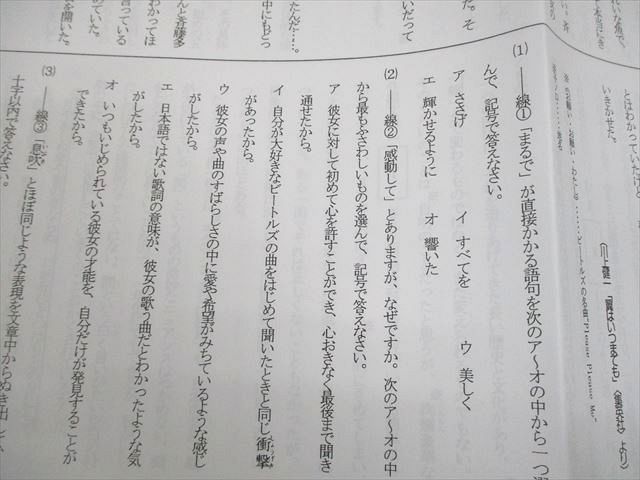 とはわかっていたけど
いきかせた。
(川上健一「翼はいつまでも」〈集英社〉より)
ビートルズの名曲"Please Please Me"
(1) ――線①「まるで」が直接かかる語句を次のア〜オの中から一つ選
んで、記号で答えなさい。
ア ささげ イ すべてを ウ 美しく
エ 輝かせるように オ 響いた
(2) ――線②「感動して」とありますが、なぜですか。次のア〜オの中
から最もふさわしいものを選んで、記号で答えなさい。
ア 彼女に対して初めて心を許すことができ、心おきなく最後まで聞き
通せたから。
イ 自分が大好きなビートルズの曲をはじめて聞いたときと同じ衝撃
があったから。
ウ 彼女の声や曲のすばらしさの中に愛や希望がみちているような感じ
がしたから。
エ 日本語ではない歌詞の意味が、彼女の歌う曲だとわかったような気
がしたから。
オ いつもいじめられている彼女の才能を、自分だけが発見することが
できたから。
(3) ――線③「息吹」とほぼ同じような表現を文章中からぬき出し、
十字以内で答えなさい。